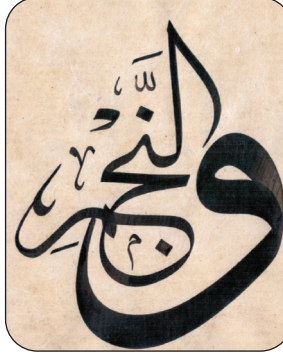 والنجم